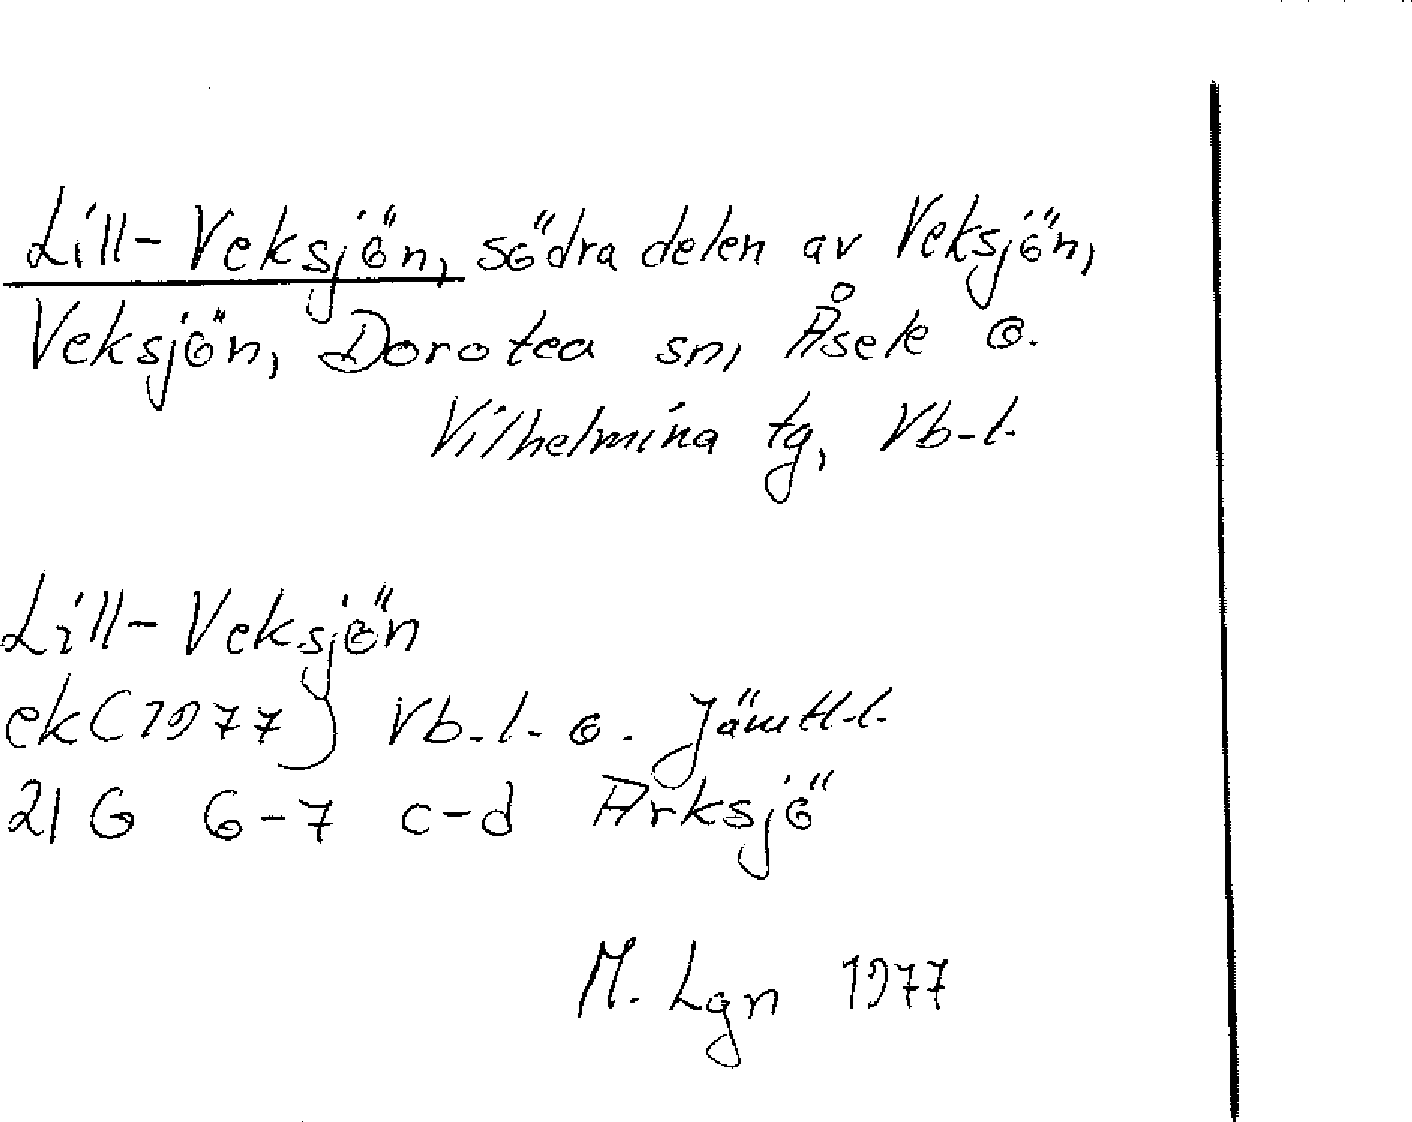 Lill-Veksjön, södra delen av Veksjön,
Veksjön, Dorotea sn, Åsele o.
Vilhelmina tg, Vb-l.
Lill-Veksjön
ek (1977) Vb.l. o. Jämtl.l.
21 G 6-7 c-d Arksjö
M. Lgn 1977